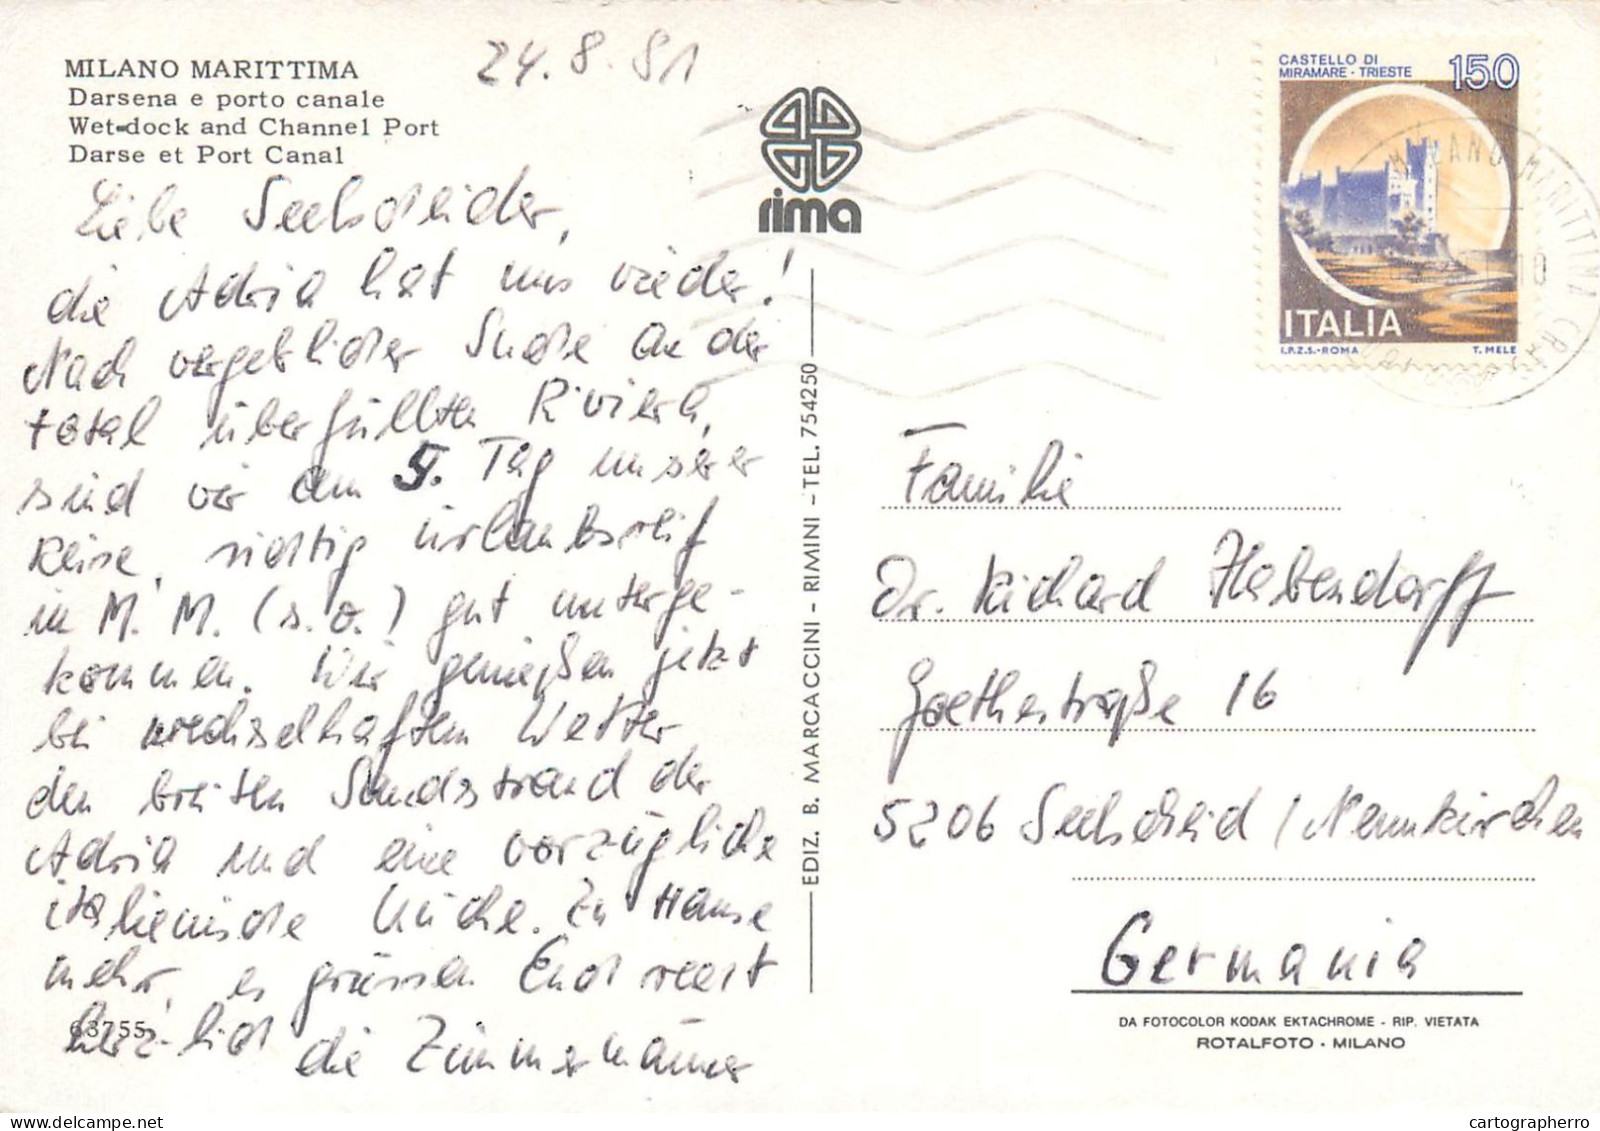 MILANO MARITTIMA
Darsena e porto canale
Wet-dock and Channel Port
Darse et Port Canal
24.8.81
Liebe Seelscheider,
die Adria hat uns wieder!
Nach vergeblicher Suche an der
total überfüllten Riviera,
sind wir am 5. Tag unserer
Reise, richtig urlaubsreif
in M. M. (s.o.) gut unterge-
kommen. Wir genießen jetzt
bei wechselhaftem Wetter
den breiten Sandstrand der
Adria und eine vorzügliche
italienische Küche. Zu Hause
mehr, es grüssen Euch recht
herz-lich die Zimmermänner
63755
rima
EDIZ. B. MARCACCINI - RIMINI - TEL. 754250
CASTELLO DI
MIRAMARE - TRIESTE
150
ITALIA
I.P.Z.S.-ROMA T. MELE
MILANO MARITTIMA
10
Familie
Dr. Richard Habendorff
Goethestraße 16
5206 Seelscheid / Neunkirchen
Germania
DA FOTOCOLOR KODAK EKTACHROME - RIP. VIETATA
ROTALFOTO - MILANO
cartographerro